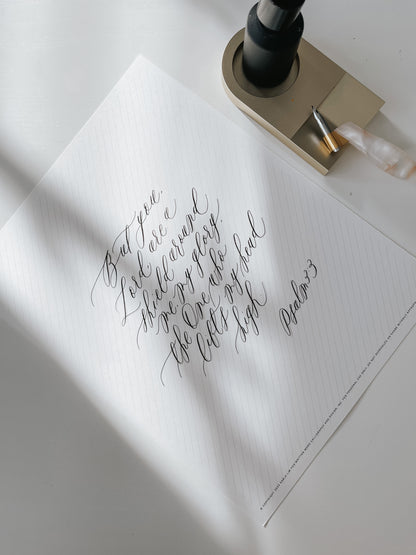 But you,
Lord are a
shield around
me, my glory,
the One who
lifts my head
high
Psalm 3:3